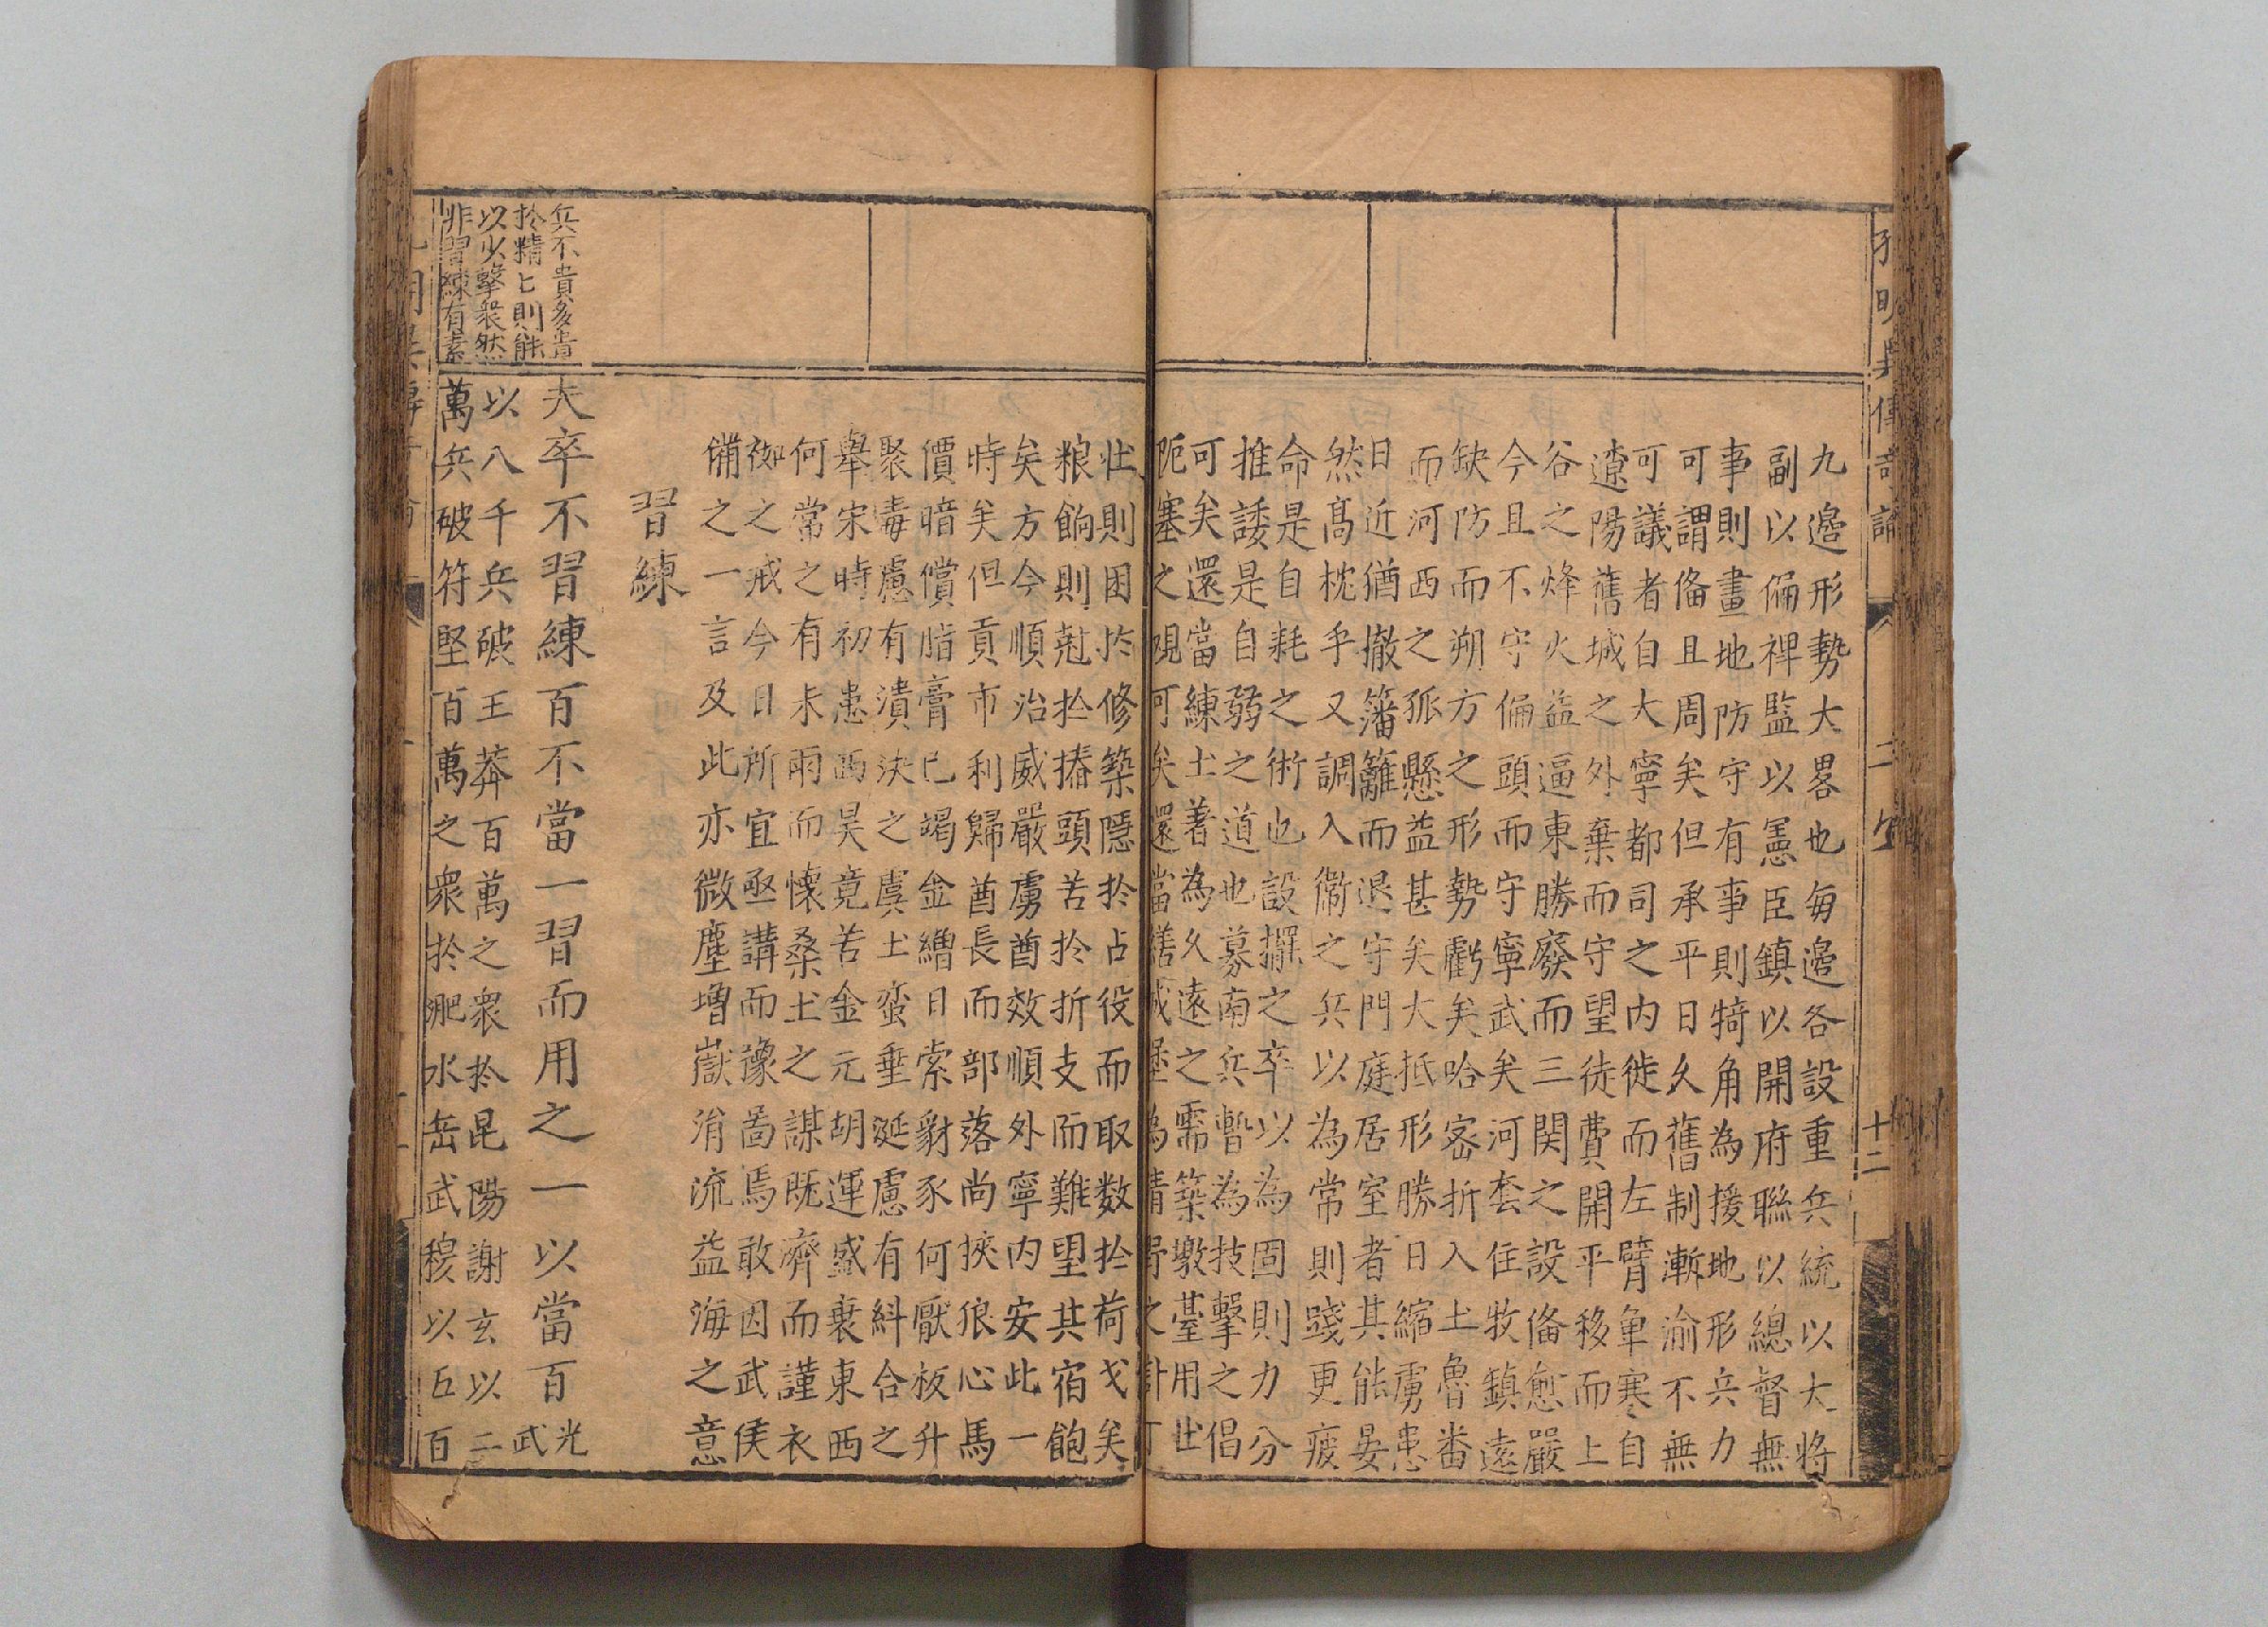 九邉形勢大畧也每邉各設重兵統以大將
副以偏裨監以憲臣鎮以開府聯以總督無
事則畫地防守有事則犄角為援地形兵力
可謂俻且周矣但承平日久舊制漸渝不無
可議者自大寧都司之内徙而左臂單寒自
遼陽舊城之外棄而守望徒費開平移而上
谷之烽火益逼東勝廢而三関之設俻愈嚴
今且不守偏頭而守寧武矣河套住牧鎮遠
缺防而朔方之形勢虧矣哈宻折入土魯番
而河西之孤懸益甚矣大抵形勝日縮虜患
日近猶撤籓籬而退守門庭居室者其能晏
然髙枕乎又調入衛之兵以為常則踐更疲
命是自耗之術也設擺之卒以為固則力分
推諉是自弱之道也募南兵暫為技擊之倡
可矣還當練土著為久遠之需築墩臺用壮
阨塞之覌可矣還當繕城堡為清之計
壮則困扵修築隱扵占役而取数扵荷戈矣
粮餉則尅扵撦頭苦扵折支而難望共宿飽
矣方今順治威嚴虜酋效順外寧内安此一
時矣但貢市利歸酋長而部落尚挾狼心馬
價暗償脂膏已竭金繒日索豺豕何厭板升
聚毒慮有潰决之虞土蛮垂涎慮有糾合之
舉宋時初患西昊竟苦金元胡運盛衰東西
何常之有未雨而懐桑土之謀既濟而謹衣
袽之戒今日所宜亟講而豫啚焉敢因武侯
備之一言及此亦微塵增嶽涓流益海之意
習練
夫卒不習練百不當一習而用之一以當百光武
以八千兵破王莽百萬之衆扵昆陽謝玄以二
萬兵破符堅百萬之衆扵淝水岳武穆以五百
兵不貴多貴
扵精匕則能
以少擊衆然
非習練有素
十二